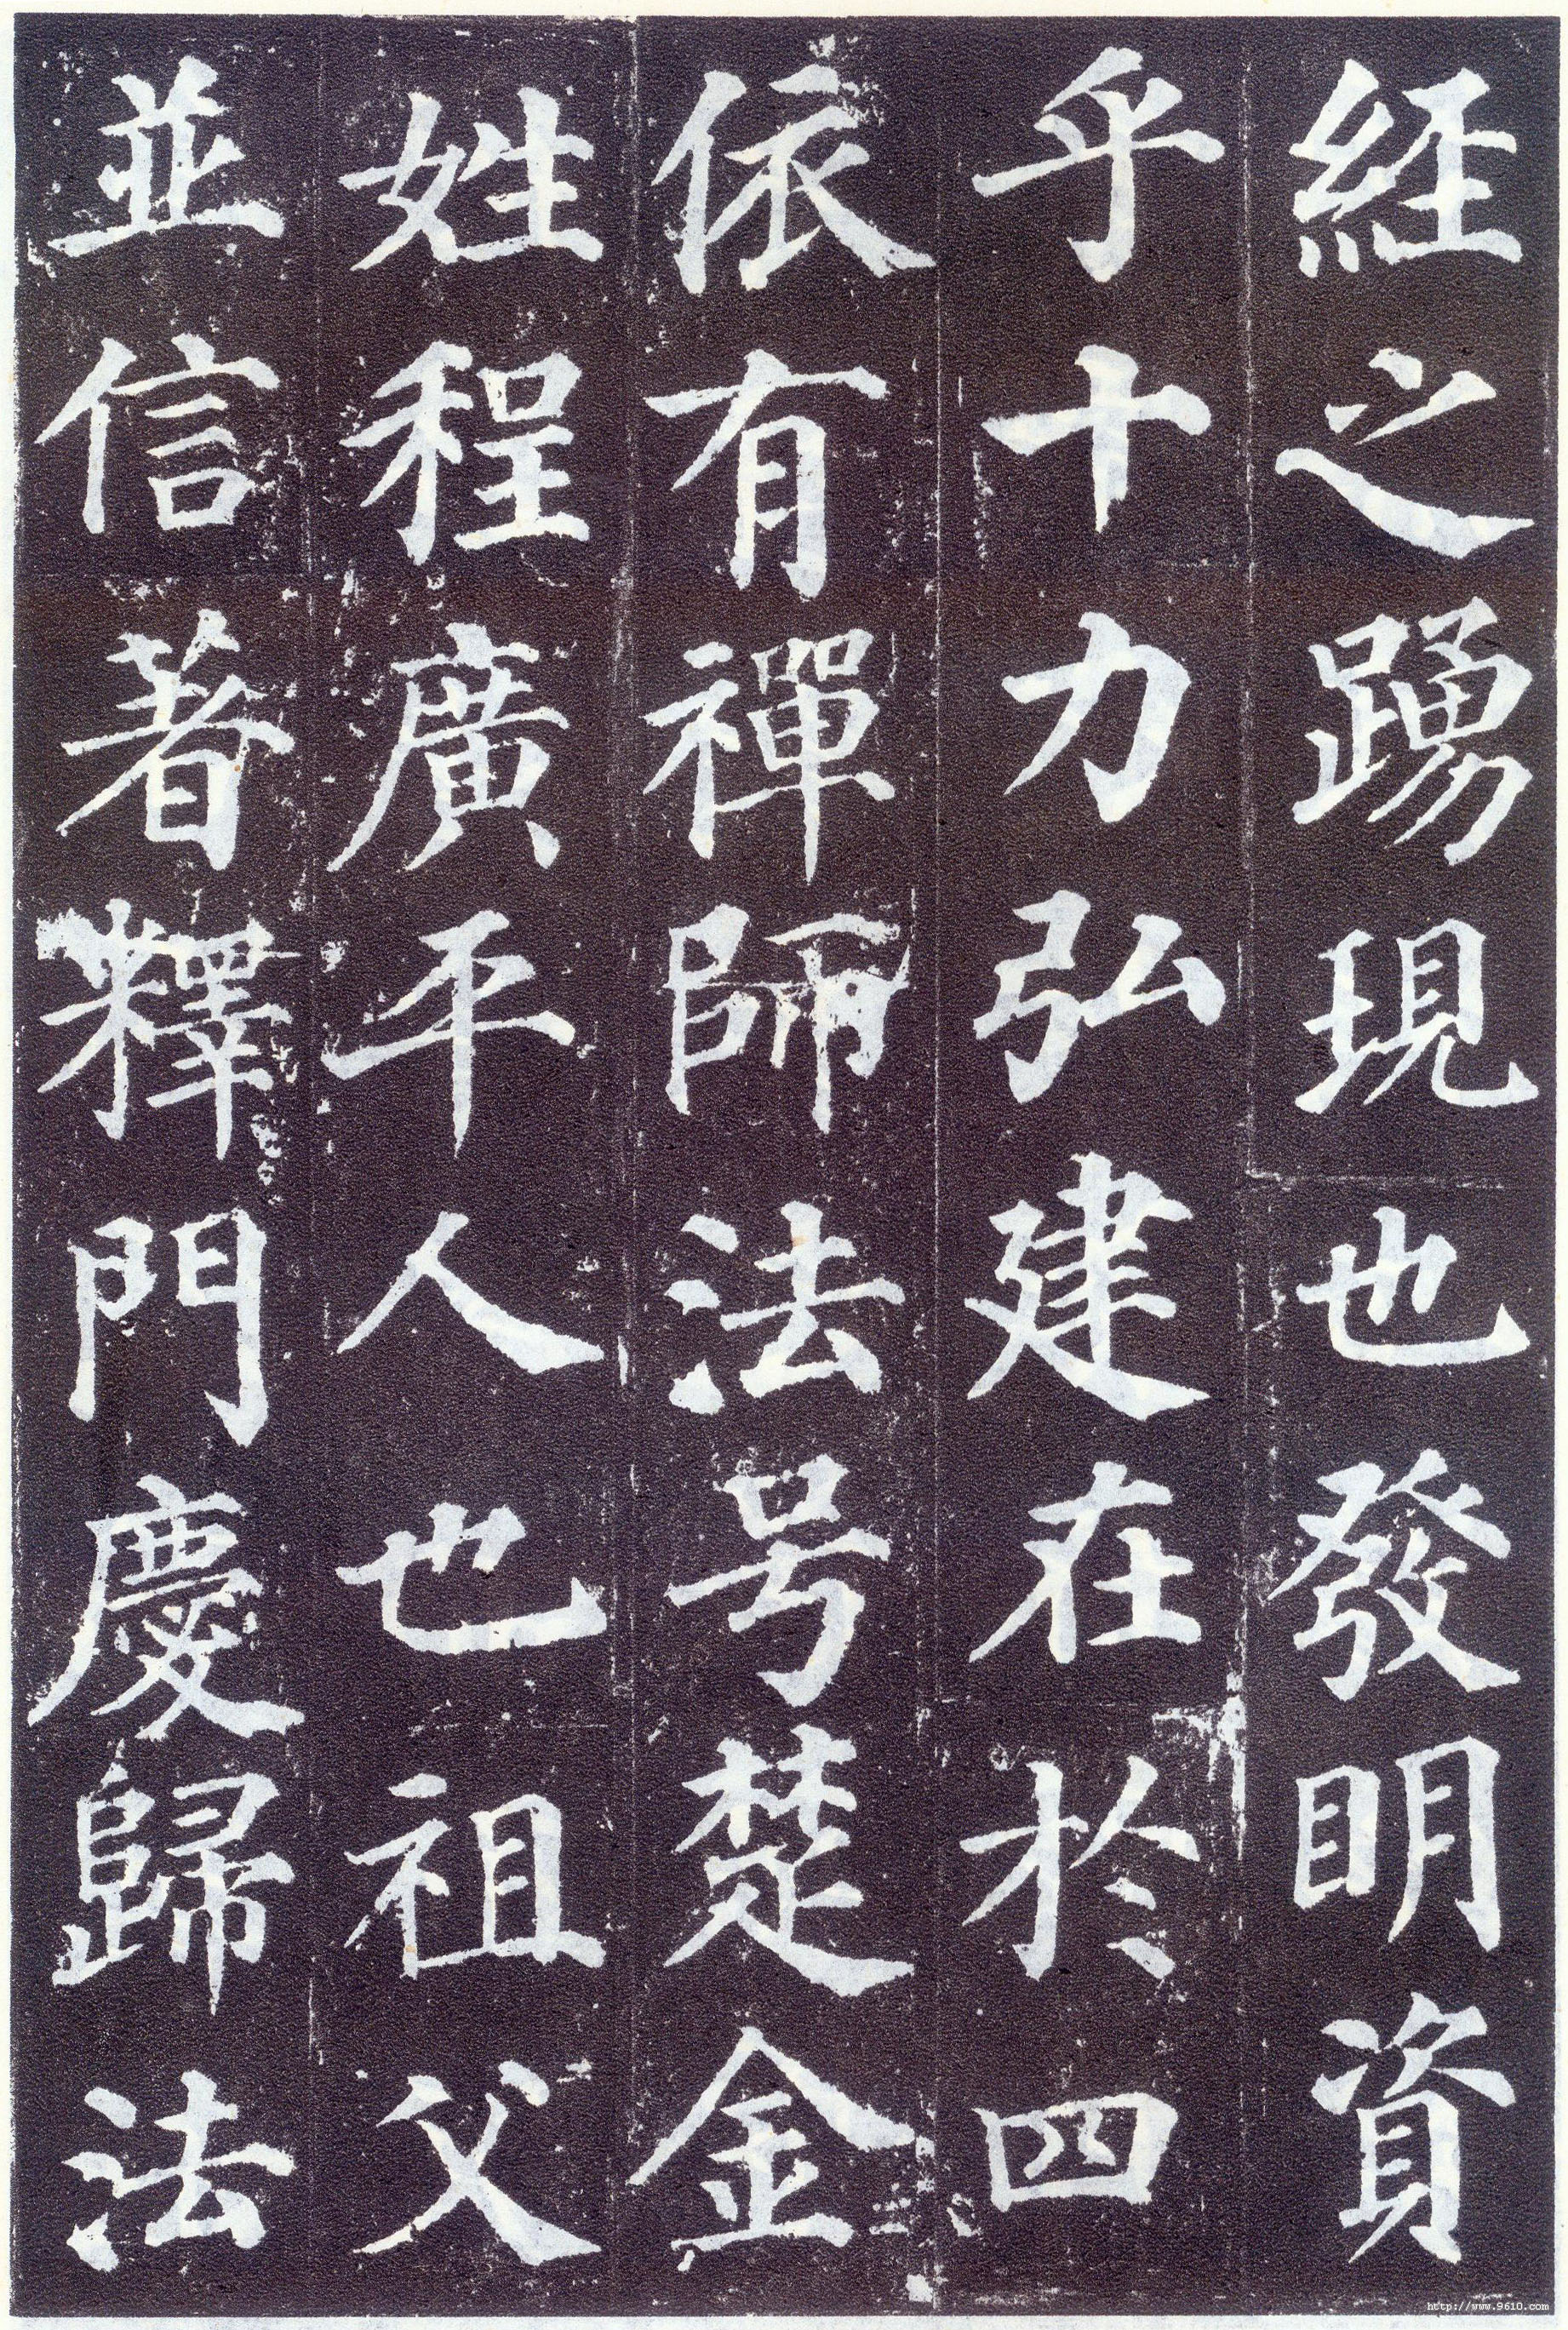 經之踴現也發明資
乎十力弘建在於四
依有禪師法号楚金
姓程廣平人也祖父
並信著釋門慶歸法
http://www.9610.com